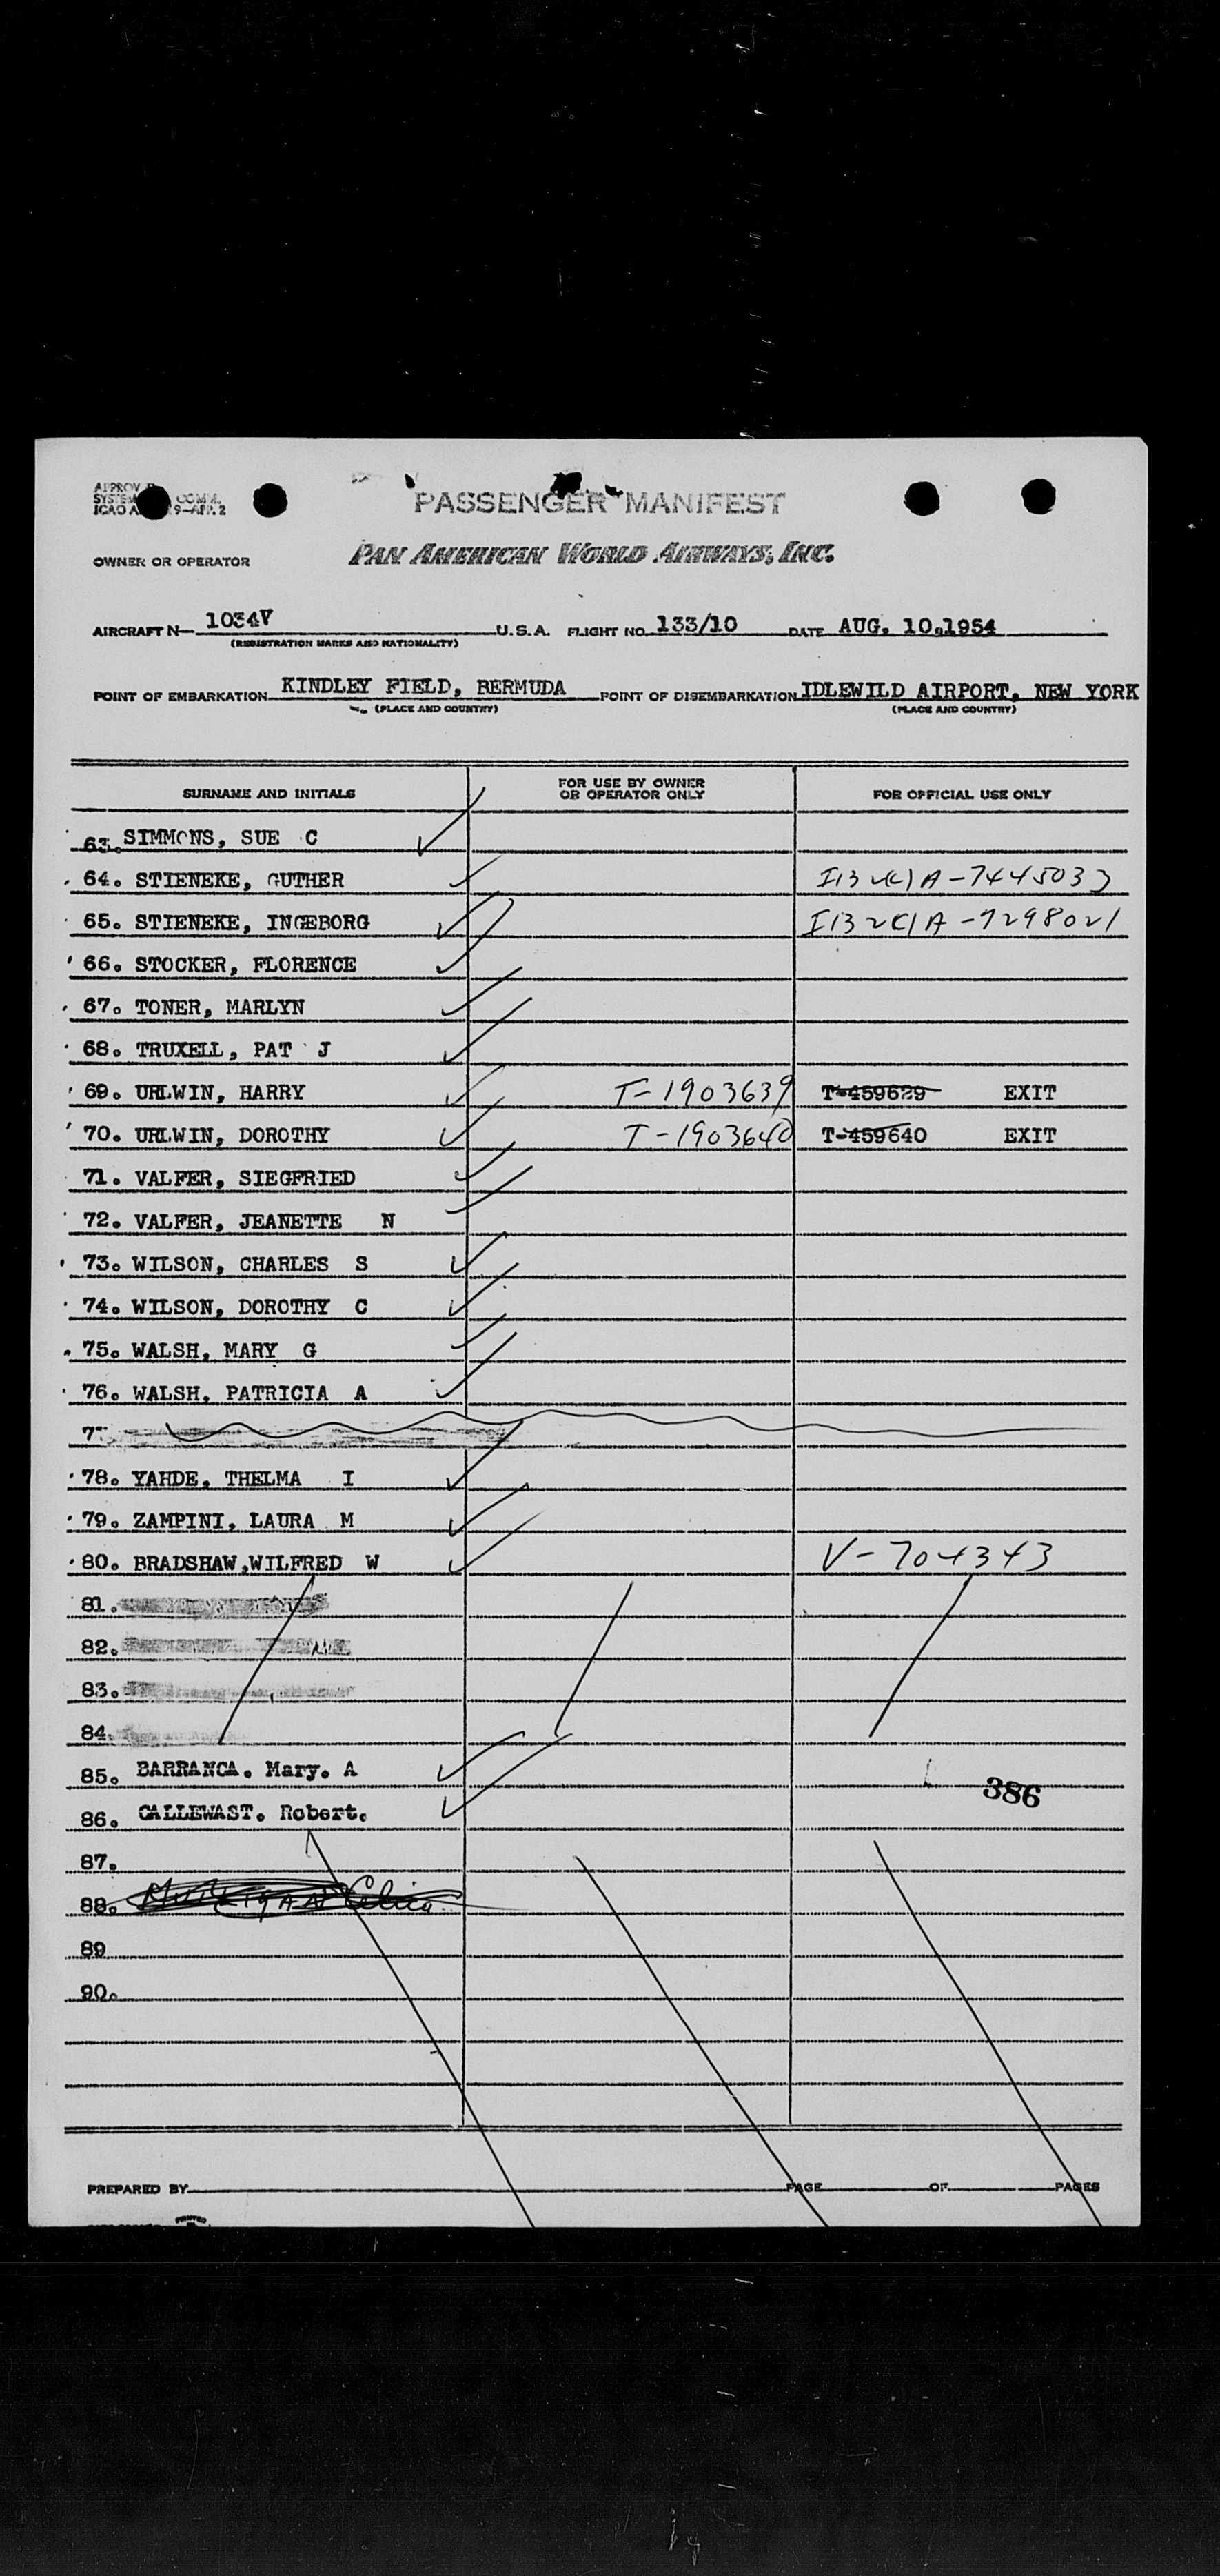 PASSENGER MANIFEST
OWNER OR OPERATOR PAN AMERICAN WORLD AIRWAYS, INC.
AIRCRAFT N— 1034V U.S.A. FLIGHT NO. 133/10 DATE AUG. 10,1954
(REGISTRATION MARKS AND NATIONALITY)
POINT OF EMBARKATION KINDLEY FIELD, BERMUDA POINT OF DISEMBARKATION IDLEWILD AIRPORT, NEW YORK
(PLACE AND COUNTRY) (PLACE AND COUNTRY)
SURNAME AND INITIALS FOR USE BY OWNER OR OPERATOR ONLY FOR OFFICIAL USE ONLY
63. SIMMONS, SUE C
64. STIENEKE, GUTHER A-7445033
65. STIENEKE, INGEBORG A-7298021
66. STOCKER, FLORENCE
67. TONER, MARLYN
68. TRUXELL, PAT J
69. URLWIN, HARRY T-1903639 T-459629 EXIT
70. URLWIN, DOROTHY T-1903640 T-459640 EXIT
71. VALFER, SIEGFRIED
72. VALFER, JEANETTE N
73. WILSON, CHARLES S
74. WILSON, DOROTHY C
75. WALSH, MARY G
76. WALSH, PATRICIA A
78. YAHDE, THELMA I
79. ZAMPINI, LAURA M
80. BRADSHAW,WILFRED W V-704343
81.
82.
83.
84.
85. BARRANCA. Mary. A
386
86. CALLEWAST. Robert.
87.
88.
89
90.
PREPARED BY PAGE OF PAGES